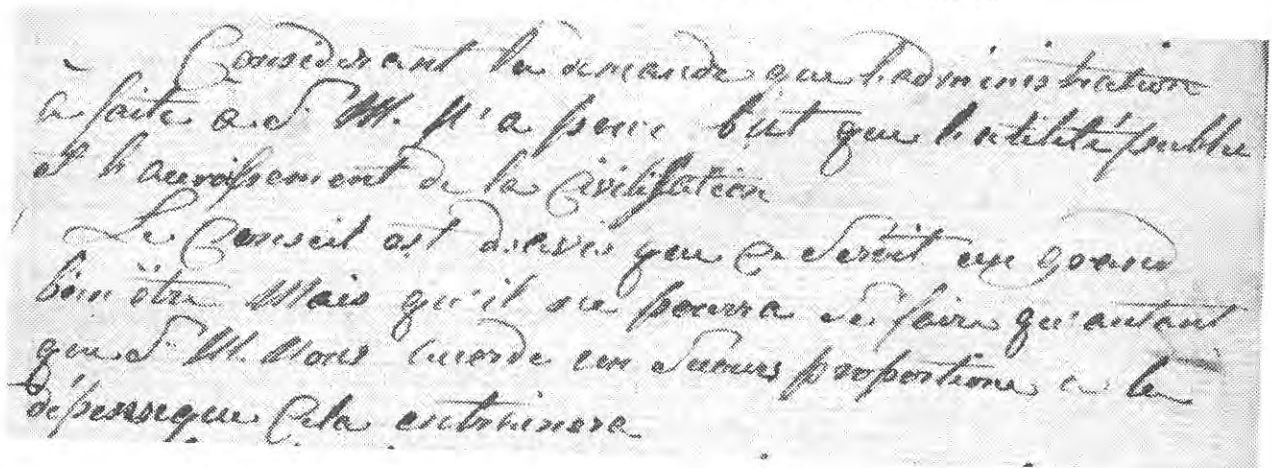 Considerant la demande que l'administration
a faite a S. M. n'a pour but que l'utilité publie
et l'acroissement de la Civilisation
Le Conseil est d'avis que Ce Seroit un grand
bien être Mais qu'il ne pourra Se faire qu'autant
que S. M. Nous acorde un Secours proportione a la
dépense que Cela entrainera